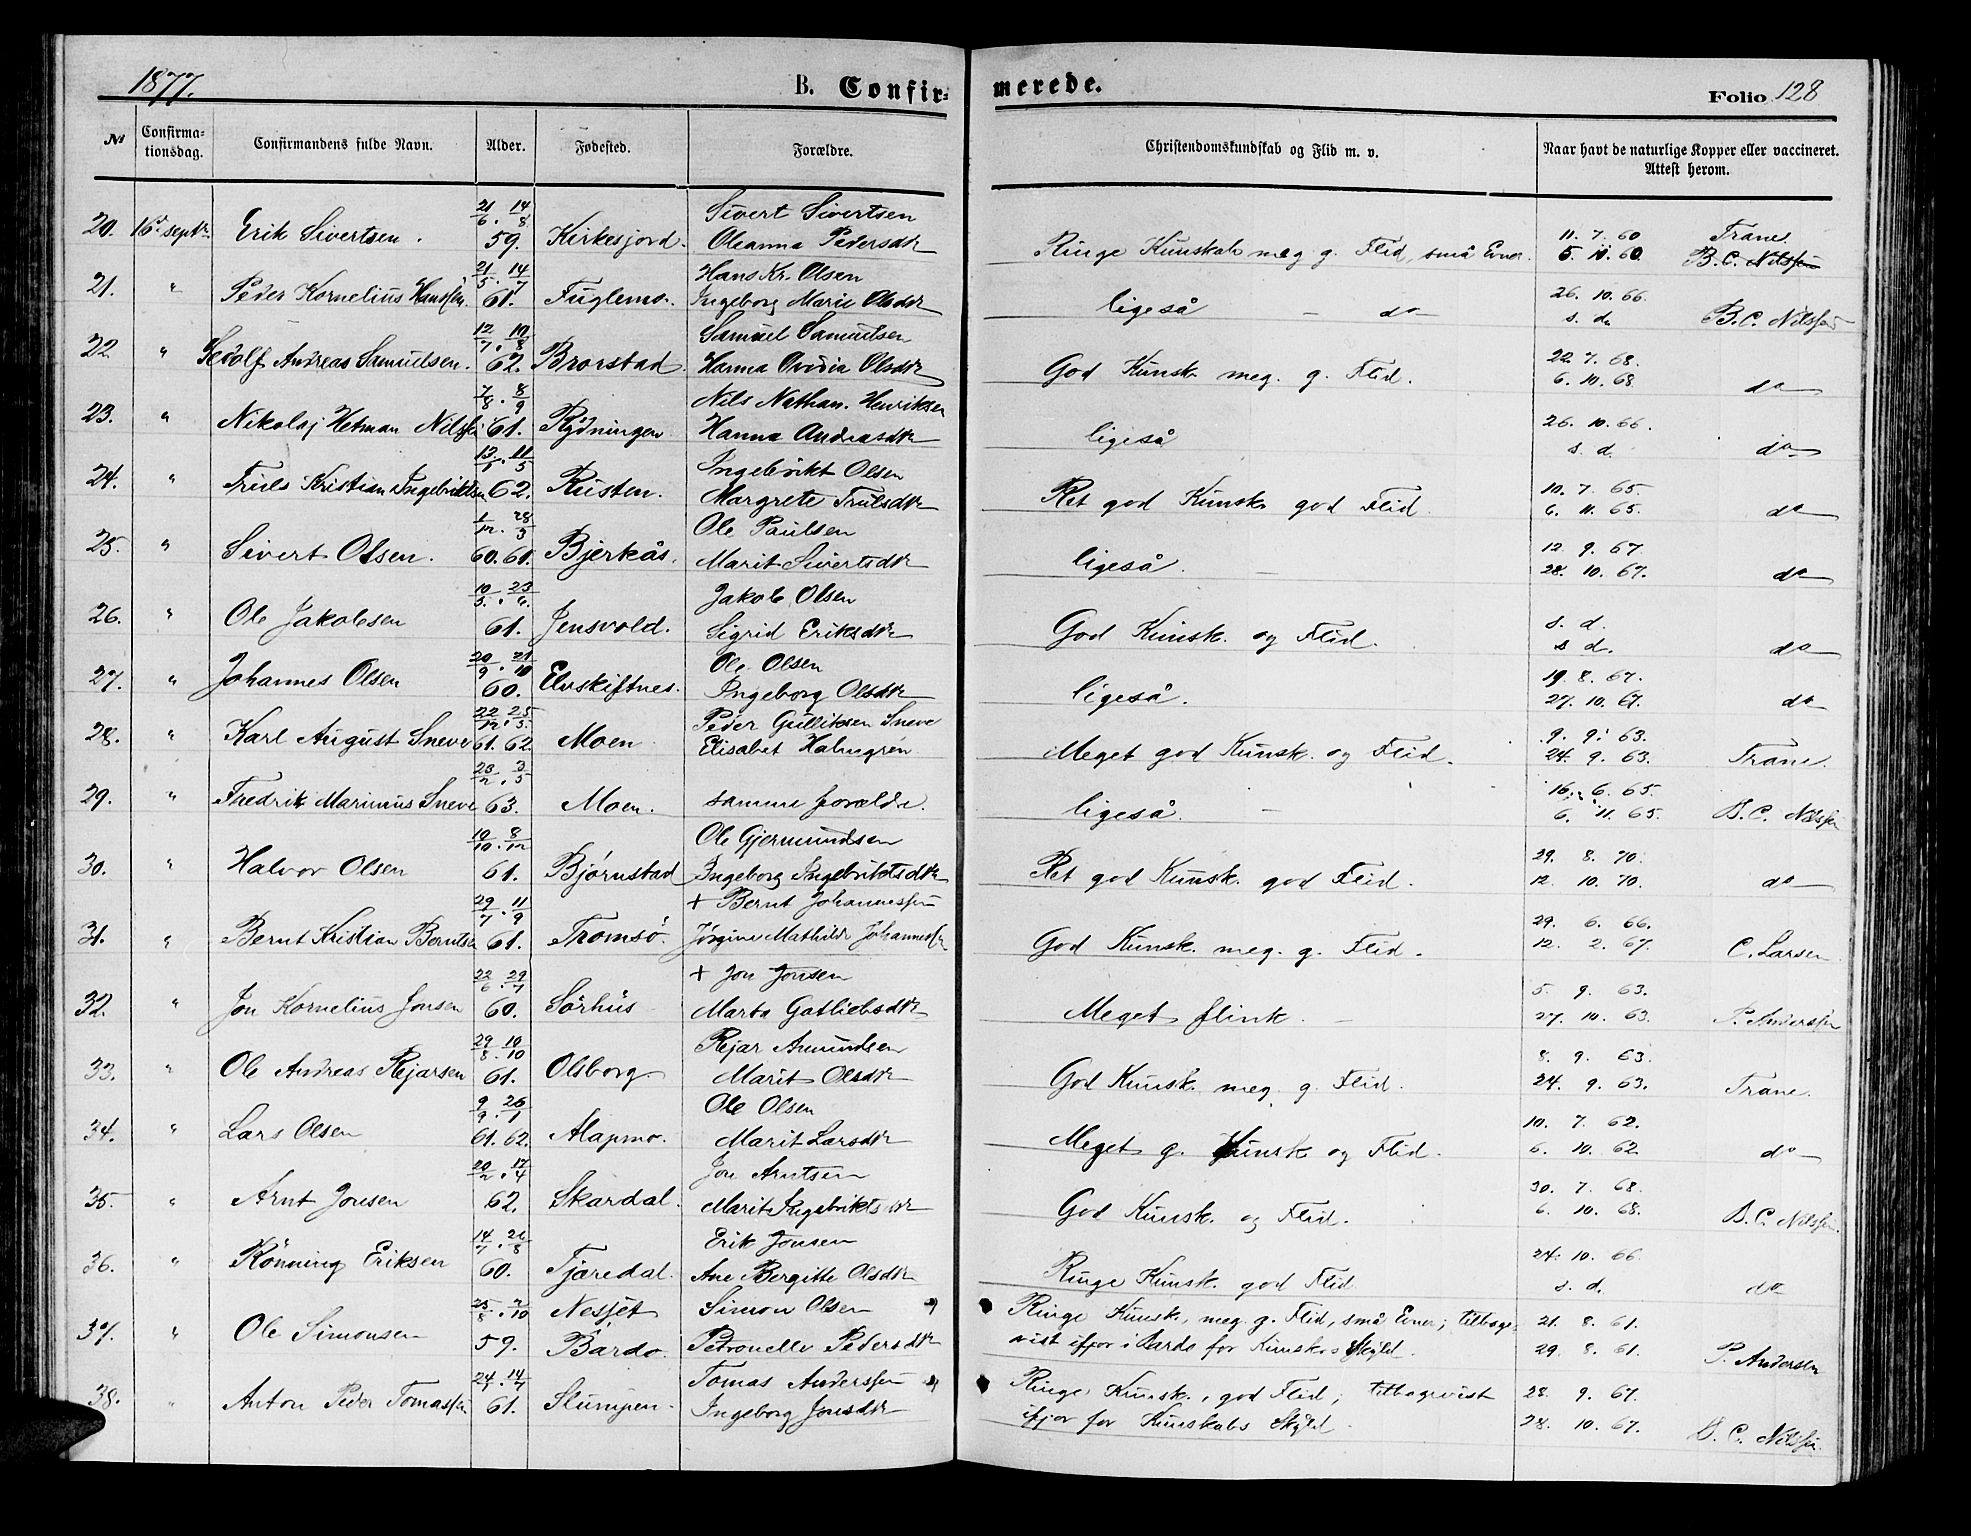 1877.
B. Confir-
merede.
Folio 128
№ Confirma-tionsdag. Confirmandens fulde Navn. Alder. Fødested. Forældre. Christendomskundskab og Flid m. v. Naar havt de naturlige Kopper eller vaccineret. Attest herom.
21/6. 14/8 Sivert Sivertsen 11. 7. 60 Trane
20. 16 septr. Erik Sivertsen. 59. Kirkesjord. Oleanna Pedersdtr Ringe Kunskab meg g. Flid, små Evner. 5. 10. 60. B. C. Nilssen
21/5. 14/7 Hans Kr. Olsen 26. 10. 66.
21. " Peder Kornelius Hanssen. 61. Fuglemo. Ingeborg Marie Olsdtr ligeså — do s. d. B. C. Nilssen
12/7. 19/8 Samuel Samuelsen 22. 7. 68.
22. " Andreas Samuelsen. 62. Brorstad Hanna Ovidia Olsdtr God Kunsk. meg. g. Flid. 6. 10. 68 do
7/8. 8/9 Nils Nathan. Henriksen 26. 10. 66.
23. " Nikolaj Hetman Nilssen 61. Rydningen Hanna Andreasdtr ligeså s. d. do
11/5 Ingebrikt Olsen 10. 7. 65.
24. " Truls Kristian Ingebriktsen 62. Rusten. Margrete Trulsdtr Ret god Kunsk. god Flid. 6. 11. 65. do
1/12. 28/3 Ole Paulsen 12. 9. 67.
25. " Sivert Olsen. 60. 61. Bjerkås. Marit Sivertsdtr ligeså. — 28. 10. 67. do
10/5. 23/6. Jakob Olsen s. d.
26. " Ole Jakobsen 61. Jensvold. Sigrid Eriksdtr God Kunsk. og Flid. s d. do
20/9. 21/10 Ole Olsen 19. 8. 67.
27. " Johannes Olsen 60. Elvskiftnes. Ingeborg Olsdtr ligeså. 27. 10. 67. do
22/12. 25/3. Peder Gulliksen Sneve 9. 9. 63.
28. " Karl August Sneve 61. 62. Moen Elisabet Halmgren Meget god Kunsk. og Flid. 24. 9. 63. Trane.
23/2. 3/5 16. 6. 65.
29. " Fredrik Marinius Sneve 63. Moen. samme forældre. ligeså. — 6. 11. 65. B. C. Nilssen
10/10. 8/12 Ole Gjermundsen 29. 8. 70.
30. " Halvor Olsen 61. Bjørnstad Ingeborg Ingebriktsdtr Ret god Kunsk. god Flid. 12. 10. 70. do
29/7. 11/9 + Bernt Johannessen 29. 6. 66.
31. " Bernt Kristian Berntsen 61. Tromsö. Jörgine Mathilde Johannesdtr God Kunsk. meg. g. Flid. 12. 2. 67. C. Larsen
22/6. 29/7 + Jon Jonsen 5. 9. 63.
32. " Jon Kornelius Jonsen 60. Sörhus Marta Gatliebsdtr Meget flink. — 27. 10. 63. P. Anderssen
29/8. 10/10 Rejar Amundsen 8. 9. 63.
33. " Ole Andreas Rejarsen 61. Olsborg. Marit Olsdtr God Kunsk. meg. g. Flid. 24. 9. 63. Trane.
9/9. 26/1 Ole Olsen 10. 7. 62.
34. " Lars Olsen 61. 62. Alapmo. Marit Larsdtr Meget g. Kunsk og Flid. 6. 10. 62. do
20/2. 17/4 Jon Arntsen 30. 7. 68.
35. " Arnt Jonsen 62. Skardal. Marit Ingebriktsdtr God Kunsk. og Flid. 6. 10. 68. B. C. Nilssen.
14/7. 26/8 Erik Jonsen 24. 10. 66
36. " Könning Eriksen 60. Tjæredal. Ane Bergitte Olsdtr Ringe Kunsk. god Flid. s. d. do
25/8. 2/10 Nesjet Simon Olsen Ringe Kunsk, meg. g. Flid, små Evner; tilbage- 21. 8. 61.
37. " Ole Simonsen 59. Bardo. Petronelle Pedersdtr vist ifjor i Bardo for Kunskabs Skyld. 29. 8. 61. P. Andersen
14/7 Tomas Anderssen Ringe Kunsk., god Flid; tilbagevist 28. 9. 67.
38. " Anton Peder Tomassen 61. Slumpen. Ingeborg Jonsdtr ifjor for Kunskabs Skyld. 28. 10. 67. B. C. Nilssen.